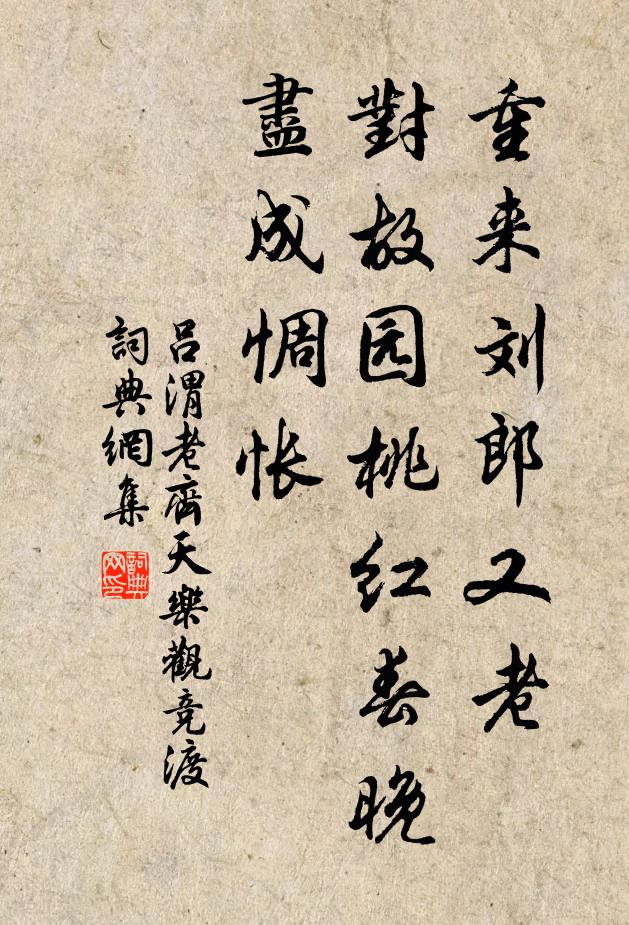 重来刘郎又老
對故园桃红春晚
盡成惆怅
吕渭老齊天樂觀竞渡
詞典網集
詞典网印